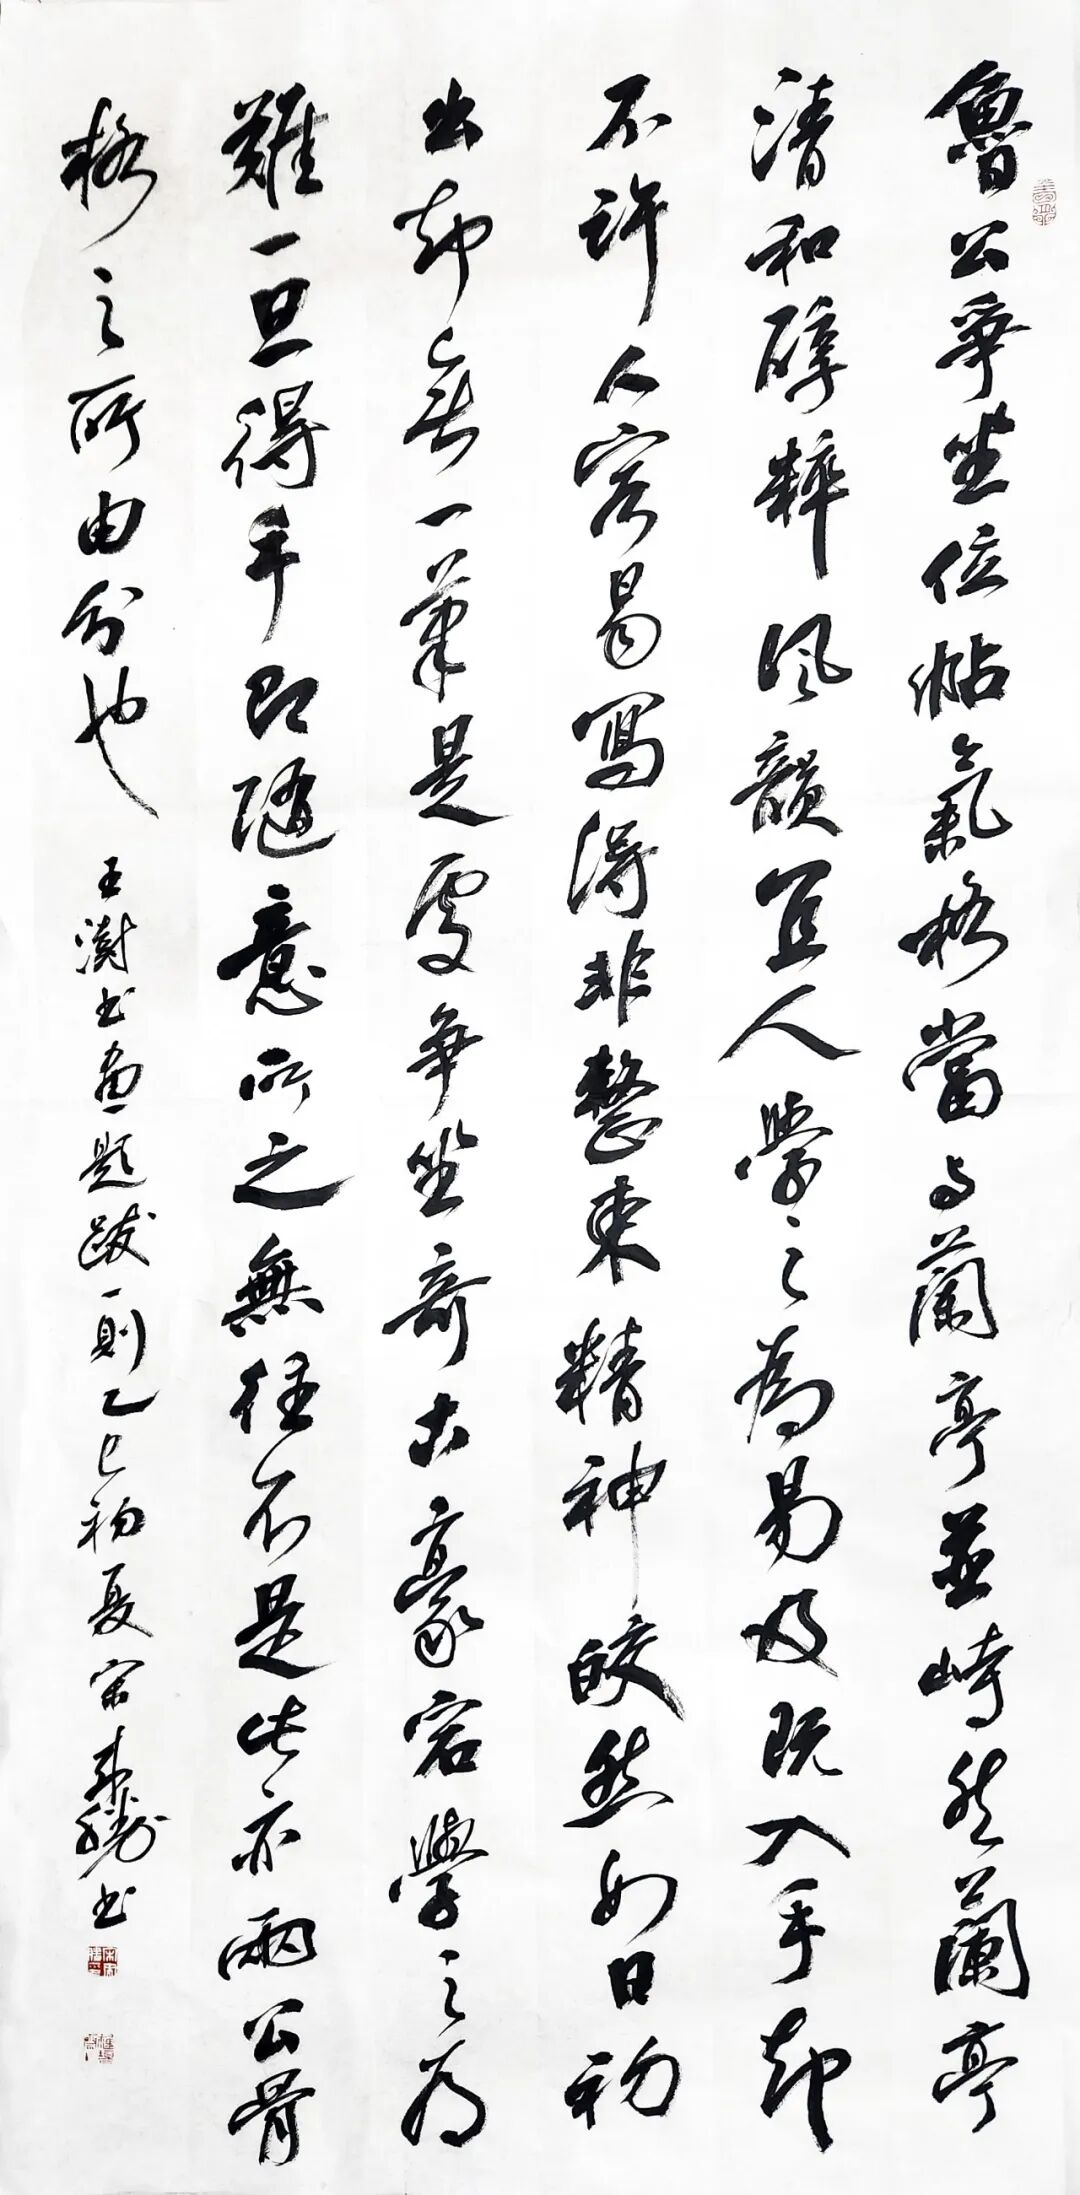 魯公爭坐位帖氣格當与蘭亭並峙然蘭亭
清和醇粹風韻宜人學之為易及既入手却
不許人容易寫得非整束精神皎然如日初
出却無一筆是處爭坐奇古豪宕學之為
難一旦得手即隨意所之無往不是此亦兩公骨
格之所由分也
王澍書畫題跋一則乙巳初夏宋來勝書